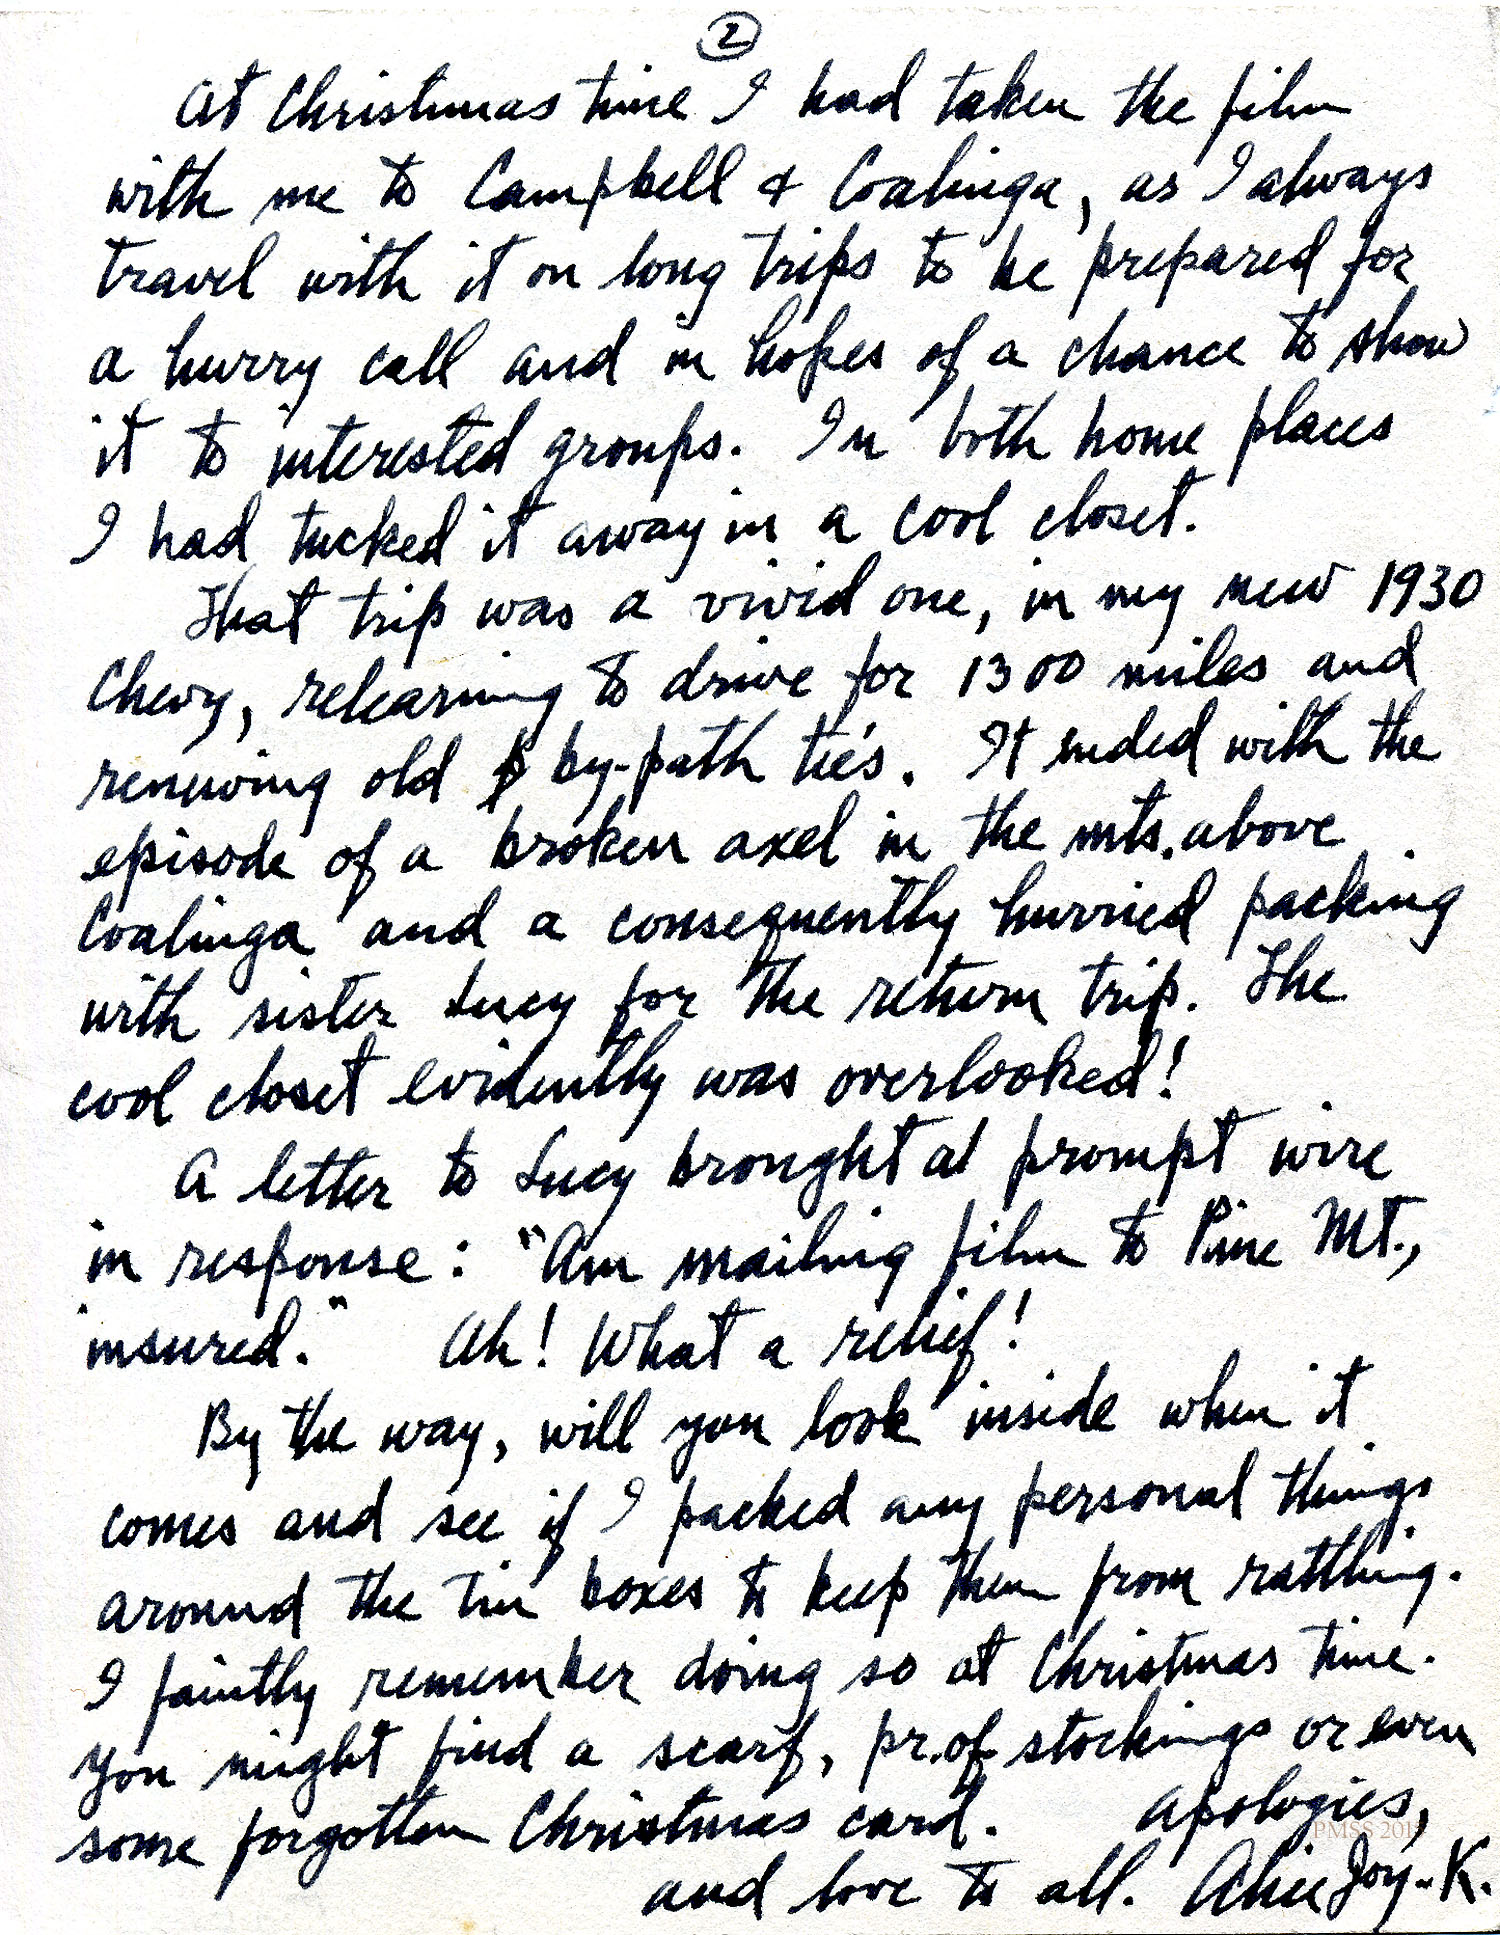 2
At Christmas time I had taken the film
with me to Campbell & Coalinga, as I always
travel with it on long trips to be prepared for
a hurry call and in hopes of a chance to show
it to interested groups. In both home places
I had tucked it away in a cool closet.
That trip was a vivid one, in my new 1930
Chevy, relearning to drive for 1300 miles and
renewing old by-path ties. It ended with the
episode of a broken axel in the mts. above
Coalinga and a consequently hurried packing
with sister Lucy for the return trip. The
cool closet evidently was overlooked!
A letter to Lucy brought a prompt wire
in response: "Am mailing film to Pine Mt.,
insured." Ah! What a relief!
By the way, will you look inside when it
comes and see if I packed any personal things
around the tin boxes to keep them from rattling.
I faintly remember doing so at Christmas time.
You might find a scarf, pr. of stockings or even
some forgotten Christmas card. Apologies,
PMSS
and love to all. Alice Joy-K.